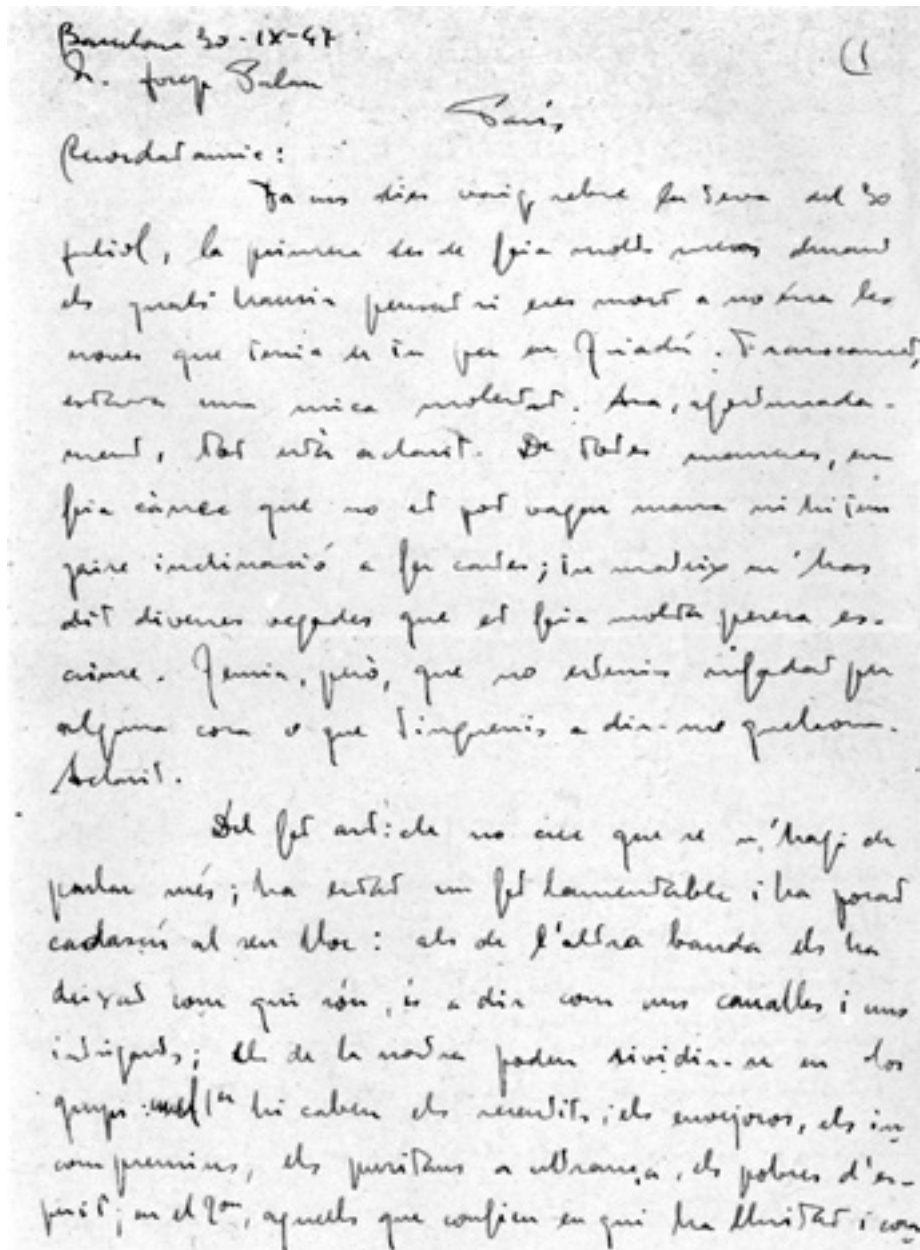 Barcelona 30-IX-47
Sr. Josep Palau (1
París
Recordat amic:
Fa uns dies vaig rebre la seva del 30
juliol, la primera des de feia molts mesos durant
els quals hauria pensat si eres mort a no ésser les
noves que tenia de tu per en Triadú. Francament,
estava una mica molestat. Ara, afortunada-
ment, tot està aclarit. De totes maneres, em
feia càrrec que no et pot vagar massa ni hi tens
gaire inclinació a fer cartes; tu mateix m'has
dit diverses vegades que et feia molta perera es-
criure. Temia, però, que no estessis enfadat per
alguna cosa o que tinguessis a dir-me quelcom.
Aclarit.
Del fet article no crec que se n'hagi de
parlar més; ha estat un fet lamentable i ha posat
cadascú al seu lloc: als de l'altra banda els ha
deixat com qui són, és a dir com uns canalles i uns
intrigants; els de la nostra poden dividir-se en dos
grups: 1er hi caben els venedits, els envejosos, els in-
compresius, els puritans a ultrança, els pobres d'es-
perit; en el 2on, aquells que confien en qui ha lluitat i